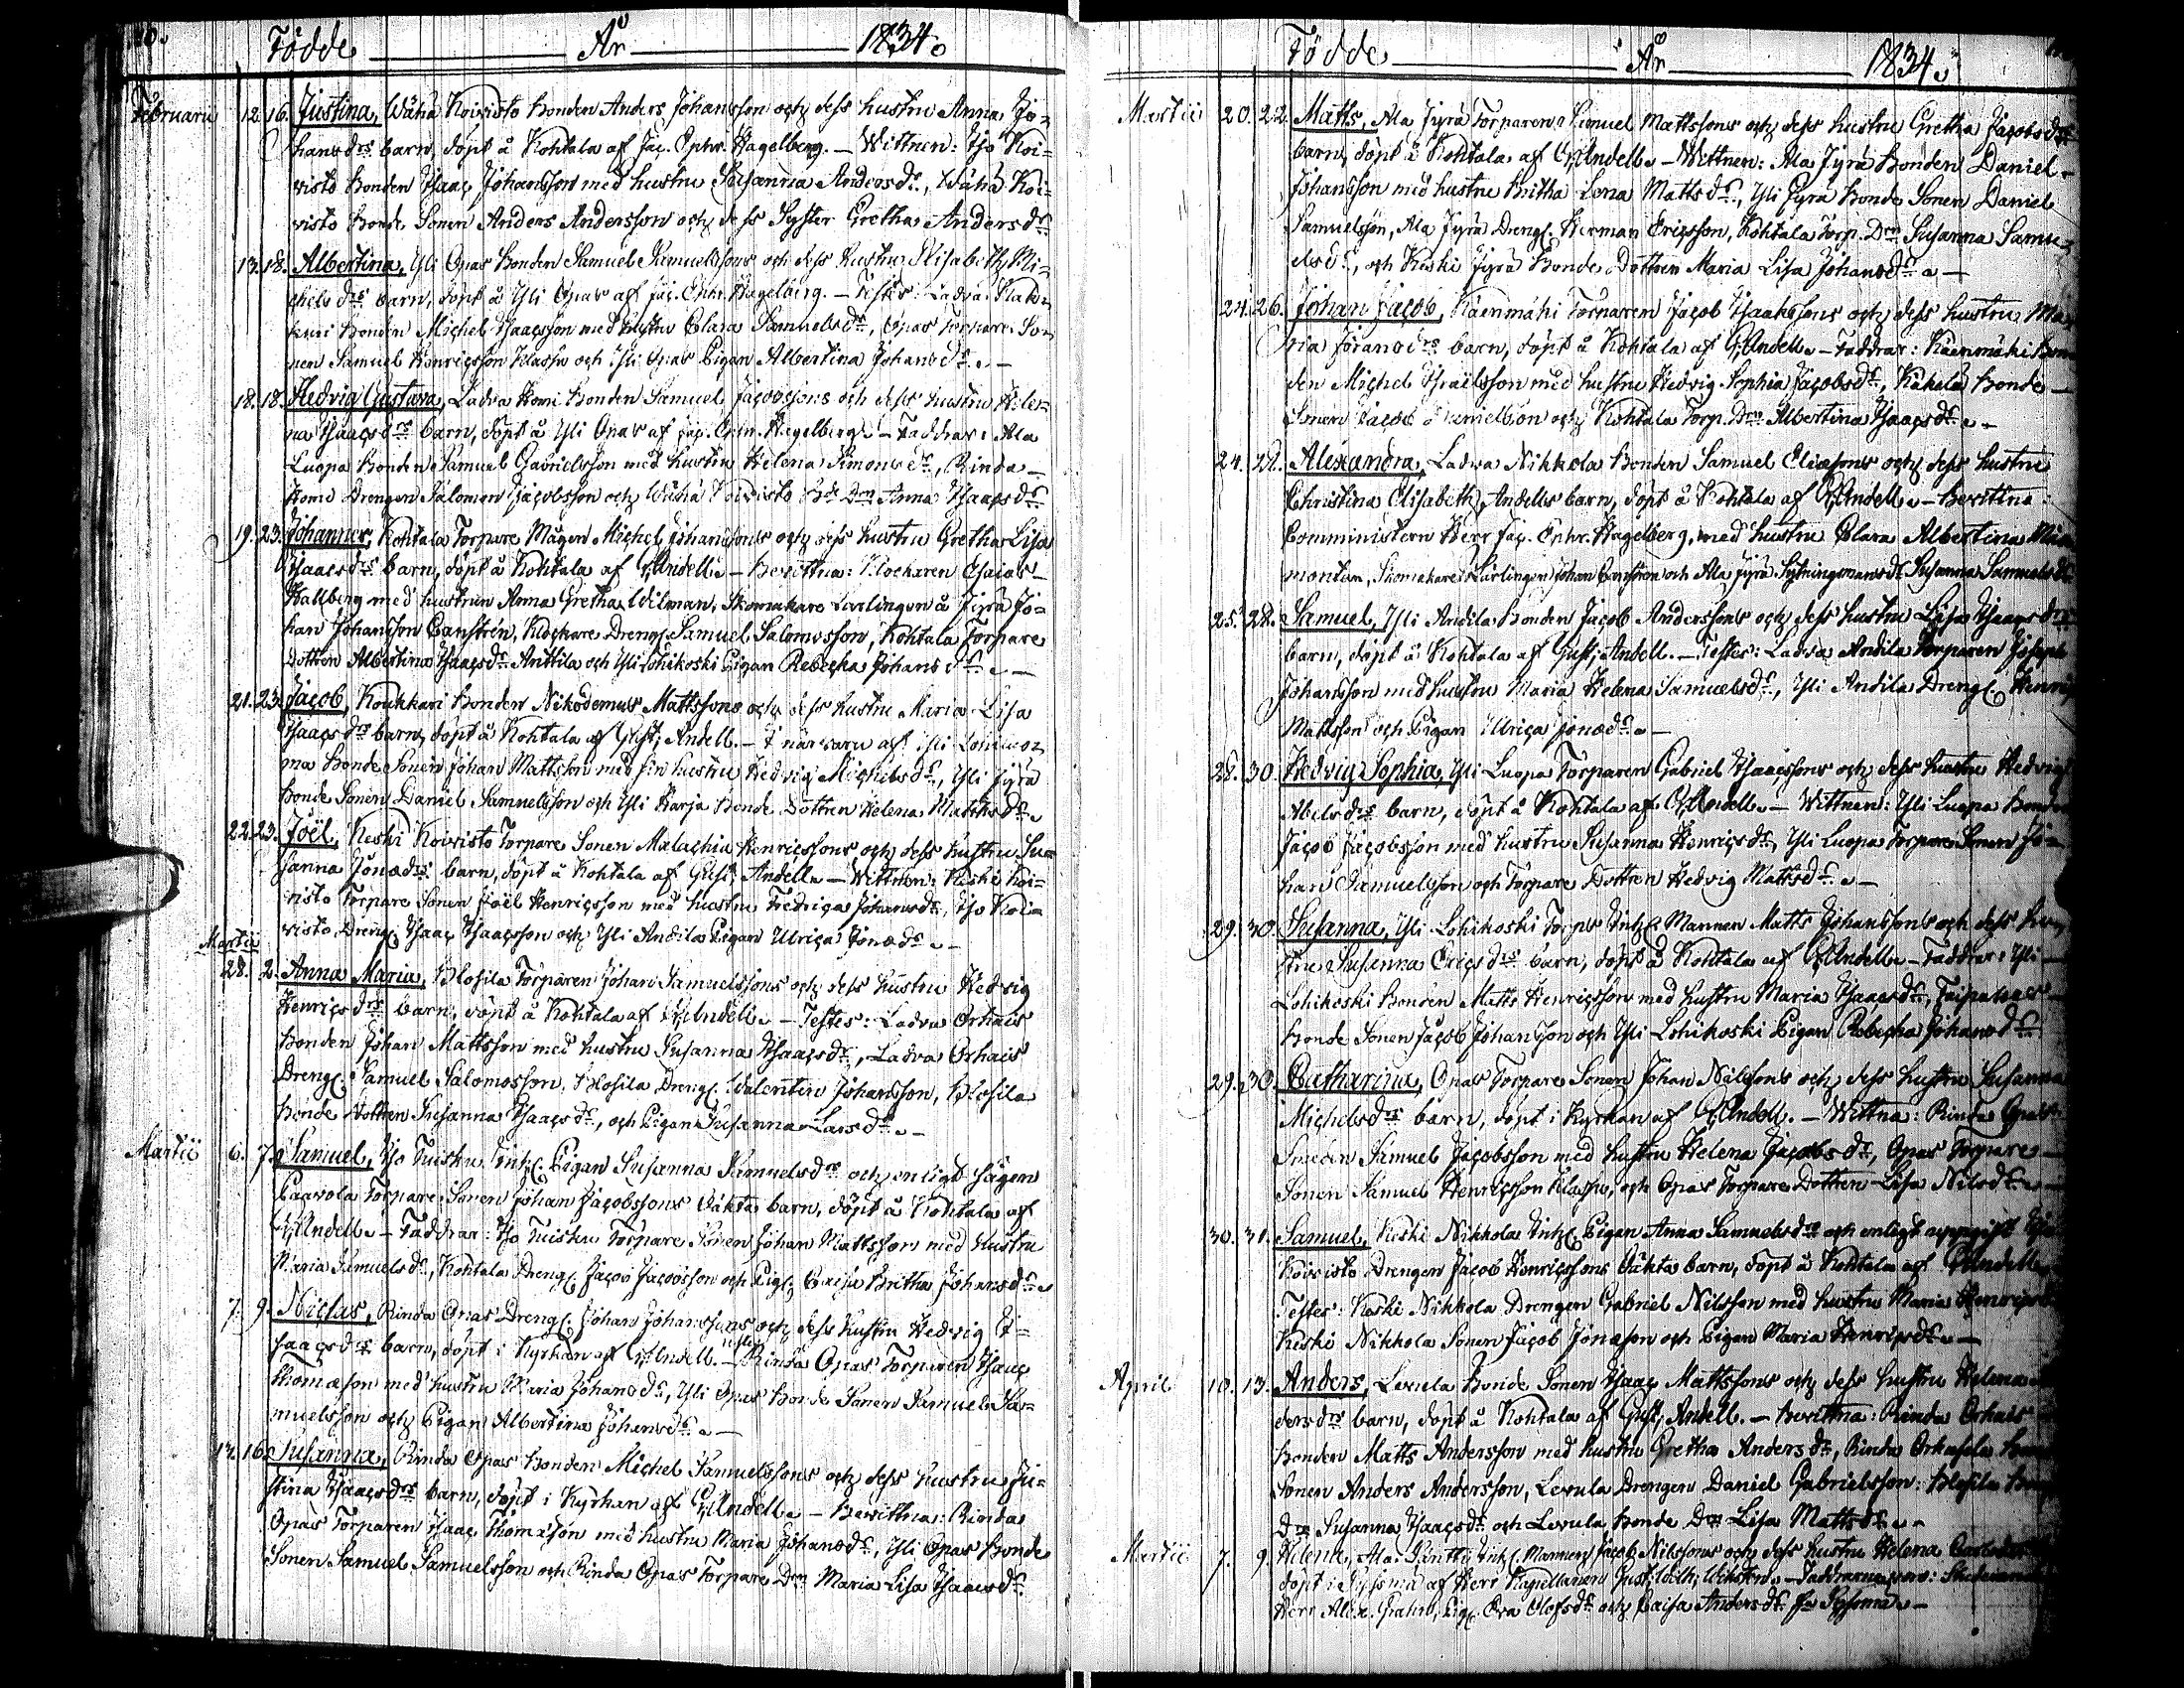 Födde År 1834.
Februarii 12. 16. Justina, Wähä Koivisto Bonden Anders Johansson och dess hustru Anna Jo=
hansdrs barn, döpt å Kohtala af Jac. Ephr. Hagelberg. – Wittnen: Iso Koi=
visto Bonden Isaac Johansson med hustru Susanna Andersdr, Wähä Koi=
visto Bonde Sonen Anders Andersson och dess Syster Gretha Andersdr
13. 18. Albertina, Yli Opas Bonden Samuel Samuelssons och dess hustru Elisabeth Mi=
chelsdrs barn, döpt å Yli Opas af Jac. Ephr. Hagelberg. – Testes: Ladva
Bonden Michel Isaacsson med hustru Clara Samuelsdr, Opas Torpare So=
nen Samuel Henricsson Klassu och Yli Opas Pigan Albertina Johansdr. –
18. 18. Hedvig Gustava, Ladva Homi Bonden Samuel Jacobssons och dess hustru Hele=
na Isaacsdrs barn, döpt å Yli Opas af Jac. Ephr. Hagelberg. – Faddrar: Ala
Luopa Bonden Samuel Gabrielsson med hustru Helena Simonsdr, Rinda
Homi Drengen Salomon Jacobsson och Wähä Koivisto Bde Drn Anna Isaacsdr
19. 23. Johannes, Kohtala Torpare Mågen Michel Johanssons och dess hustru Gretha Lisa
Isaacsdrs barn, döpt å Kohtala af G. Andell. – Bevittna: Klockaren Esaias
Hallberg med hustrun Anna Gretha Wilman, Skomakare Lärlingen å Jyrä Jo=
han Johansson Canström, Klockare Drengs. Samuel Salomosson, Kohtala Torpare
Dottren Albertina Isaacsdr Anttila och Yli Lohikoski Pigan Rebecka Johansdr. –
21. 23. Jacob, Koukkari Bonden Nikodemus Mattssons och dess hustru Maria Lisa
Isaacsdrs barn, döpt å Kohtala af Gust. Andell. – I närvaro af: Yli
ma Bonde Sonen Johan Mattsson med sin hustru Hedvig Michelsdr, Yli Jyrä
Bonde Sonen Daniel Samuelsson och Yli Harja Bonde Dottren Helena Mattsdr.
22. 23. Joël, Keski Koivisto Torpare Sonen Malachia Henricssons och dess hustru Su=
sanna Jonædrs barn, döpt å Kohtala af Gust. Andell. – Wittnen: Keski Koi=
visto Torpare Sonen Joël Henricsson med hustru Fredrica Johansdr, Iso Koi=
visto Dreng. Isaac Isaacsson och Yli Andila Pigan Ulrica Jonædr. –
Martii
28. 2. Anna Maria, Blosila Torparen Johan Samuelssons och dess hustru Hedvig
Henricsdrs barn, döpt å Kohtala af G. Andell. – Testes: Ladva Orhais
Bonden Johan Mattsson med hustru Susanna Isaacsdr, Ladva Orhais
Dreng. Samuel Salomosson, Blosila Dreng. Valentin Johansson, Blosila
Bonde Dottren Susanna Isaacsdr, och Pigan Susanna Larsdr. –
Martii 6. 7. Samuel, Iso Tuisku Inh. Pigan Susanna Samuelsdrs och enligt sägen
Paavola Torpare Sonen Johan Jacobssons Oäkta barn, döpt å Kohtala af
G. Andell. – Faddrar: Iso Tuisku Torpare Sonen Johan Mattsson med hustru
Maria Samuelsdr, Kohtala Dreng. Jacob Jacobsson och Pig. Caisa Britha Johansdr.
7. 9. Niclas, Rinda Opas Dreng. Johan Johanssons och dess hustru Hedvig I=
saacsdrs barn, döpt i Kyrkan af G. Andell. – Testes: Rinda Opas Torparen Isaac
Thomason med hustru Maria Johansdr, Yli Opas Bonde Sonen Samuel Sa=
muelsson och Pigan Albertina Johansdr. –
12. 16. Susanna, Rinda Opas Bonden Michel Samuelssons och dess hustru Ju=
stina Isaacsdrs barn, döpt i Kyrkan af G. Andell. – Bevittna: Rinda
Opas Torparen Isaac Thomason med hustru Maria Johansdr, Yli Opas Bonde
Sonen Samuel Samuelsson och Rinda Opas Torpare Drn Maria Lisa Isaacsdr.
Födde År 1834.
Martii 20. 22. Matts, Ala Jyrä Torparen Samuel Mattssons och dess hustru Gretha Jacobsdrs
barn, döpt å Kohtala af G. Andell. – Wittnen: Ala Jyrä Bonden Daniel
Johansson med hustru Britha Lena Mattsdr, Yli Jyrä Bonde Sonen Daniel
Samuelsson, Ala Jyrä Dreng. Herman Ericsson, Kohtala Torp. Drn Susanna Samu=
elsdr, och Keski Jyrä Bonde Dottren Maria Lisa Johansdr. –
24. 26. Johan Jacob, Käenmäki Torparen Jacob Isaakssons och dess hustru Ma=
ria Göransdrs barn, döpt å Kohtala af G. Andell. – Faddrar: Käenmäki Bon
den Michel Israelsson med hustru Hedvig Sophia Jacobsdr, Käkelä Bonde
Sonen Jacob Samuelsson och Kohtala Torp. Drn Albertina Isaacsdr. –
24. 28. Alexandra, Ladva Nikkola Bonden Samuel Eliæsons och dess hustru
Christina Elisabeth Andells barn, döpt å Kohtala af G. Andell. – Bevittna:
Comministern Herr Jac. Ephr. Hagelberg, med hustru Clara Albertina
montan, Skomakare Lärlingen Johan Canström och Ala Jyrä Sytningsmansdr Susanna Samuelsdr
25. 28. Samuel, Yli Andila Bonden Jacob Anderssons och dess hustru Lisa Isaacsdrs
barn, döpt å Kohtala af Gust. Andell. – Testes: Ladva Andila Torparen Joseph
Johansson med hustru Maria Helena Samuelsdr, Yli Andila Dreng. Henric
Mattsson och Pigan Ulrica Jonædr. –
28. 30. Hedvig Sophia, Yli Luopa Torparen Gabriel Isaacssons och dess hustru Hedvig
Abelsdrs barn, döpt å Kohtala af G. Andell. – Wittnen: Yli Luopa Bonden
Jacob Jacobsson med hustru Susanna Henricsdr, Yli Luopa Torpare Sonen Jo=
han Samuelsson och Torpare Dottren Hedvig Mattsdr. –
29. 30. Susanna, Yli Lohikoski Torps Inh. Mannen Matts Johanssons och dess hu=
stru Susanna Ericsdrs barn, döpt å Kohtala af G. Andell. – Faddrar: Yli
Lohikoski Bonden Matts Henricsson med hustru Maria Isaacsdr,
Bonde Sonen Jacob Johansson och Yli Lohikoski Pigan Rebecka Johansdr
29. 30. Catharina, Opas Torpare Sonen Johan Nilssons och dess hustru Susanna
Michelsdrs barn, döpt i Kyrkan af G. Andell. – Wittna: Rinda Opas
Smeden Samuel Jacobsson med hustru Helena Jacobsdr, Opas Torpare
Sonen Samuel Henricsson Klassu, och Opas Torpare Dottren Lisa Nilsdr. –
30. 31. Samuel, Keski Nikkola Inh. Pigan Anna Samuelsdrs och enligt uppgift
Koivisto Drengen Jacob Henricssons Oäkta barn, döpt å Kohtala af G. Andell
Testes: Keski Nikkola Drengen Gabriel Nilsson med hustru Maria Henricsdr
Keski Nikkola Sonen Jacob Jonason och Pigan Maria Henricsdr. –
April 10. 13. Anders, Levula Bonde Sonen Isaac Mattssons och dess hustru Helena
dersdrs barn, döpt å Kohtala af Gust. Andell. – Bevittna: Rinda Orhais
Bonden Matts Andersson med hustru Gretha Andersdr, Rinda
Sonen Anders Andersson, Levula Drengen Daniel Gabrielsson: Blosila
Drn Susanna Isaacsdr och Levula Bonde Drn Lisa Mattsdr. –
Martii 7. 9. Helena, Ala Päntti Inh. Mannen Jacob Nilssons och dess hustru Helena
döpt i af Herr Kapellanen Gust. Wilh. – Faddrarne voro:
Herr Alex. Grahn, Pig. Eva Olofsdr och Caisa Andersdr